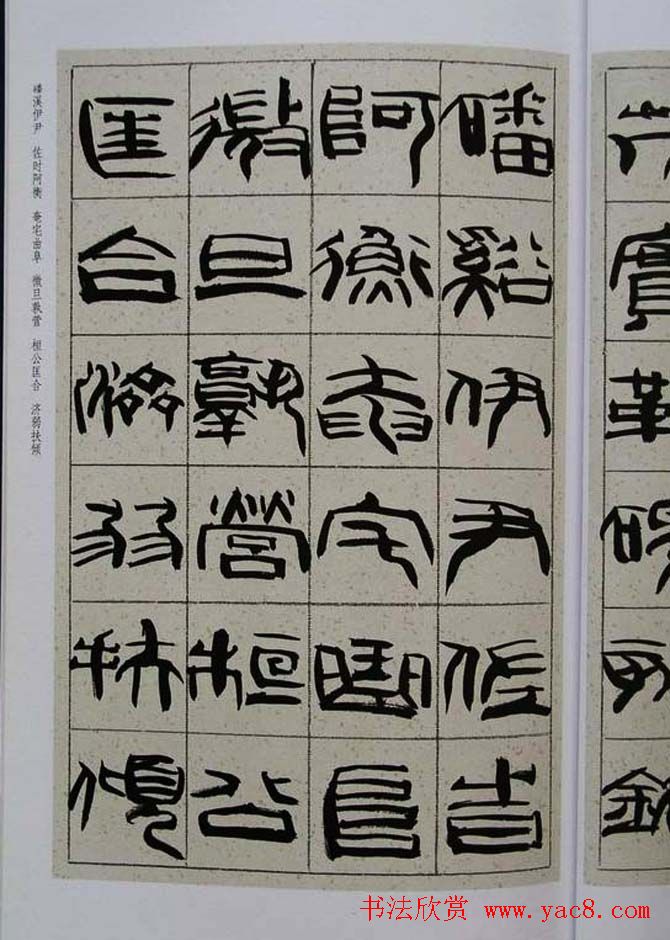 磻谿伊尹佐旹
阿衡奄宅曲阜
微旦孰營桓公
匡合濟弱扶傾
磻溪伊尹 佐时阿衡 奄宅曲阜 微旦孰营 桓公匡合 济弱扶倾
书法欣赏 www.yac8.com